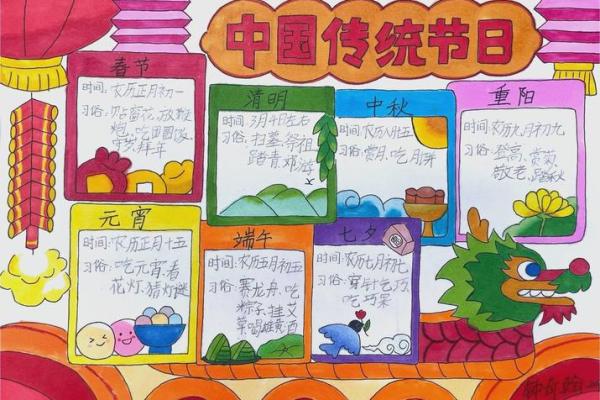 中国传统节日
春节
时间:农历正月初一
习俗:贴窗花、放鞭
炮、吃团圆饭
守岁拜年
清明
时间:3月4日左右
习俗:扫墓、祭祖
踏青郊游
中秋
时间:农历八月十五
习俗:赏月、吃月饼
重阳
时间:农历九月初九
习俗:登高、赏菊
敬老、踏秋
元宵
时间:农历正月十五
习俗:吃元宵、看
花灯、猜灯谜
端午
时间:农历五月初五
习俗:
赛龙舟、吃
粽子、挂艾
草、喝雄黄酒
七夕
时间:农历七月初七
习俗:穿针乞巧
吃巧果